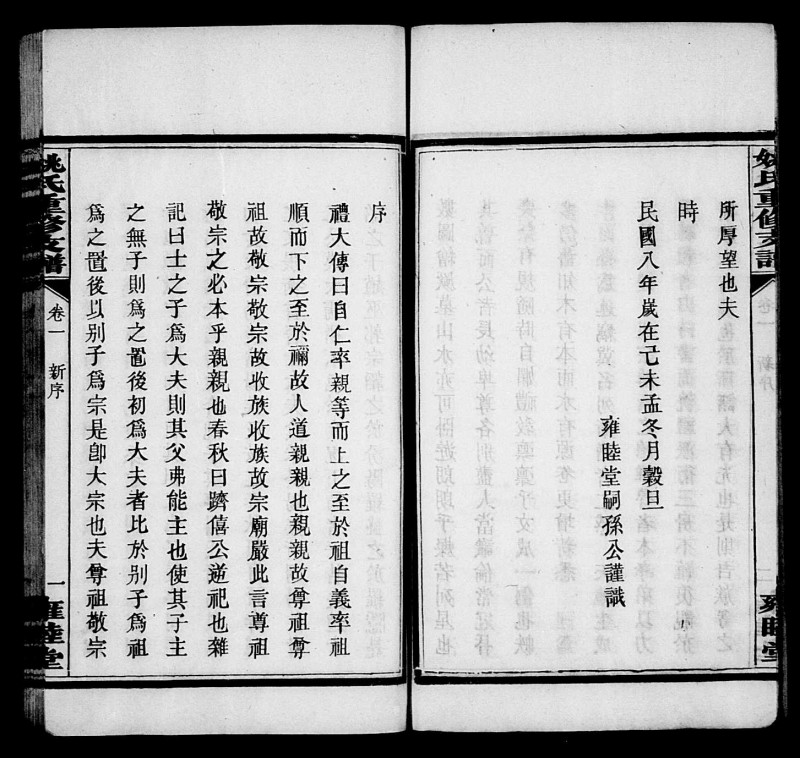 姚氏重修支譜
所厚望也夫
時
民國八年歲在己未孟冬月穀旦
雍睦堂嗣孫公謹識
雍睦堂
序
禮大傳曰自仁率親等而上之至於祖自義率祖
順而下之至於禰故人道親親也親親故尊祖尊
祖故敬宗敬宗故收族收族故宗廟嚴此言尊祖
敬宗之必本乎親親也春秋曰躋僖公逆祀也雜
記曰士之子爲大夫則其父弗能主也使其子主
之無子則爲之置後初爲大夫者比於别子爲祖
爲之置後以别子爲宗是卽大宗也夫尊祖敬宗
姚氏重修支譜
卷一
新序
一
雍睦堂